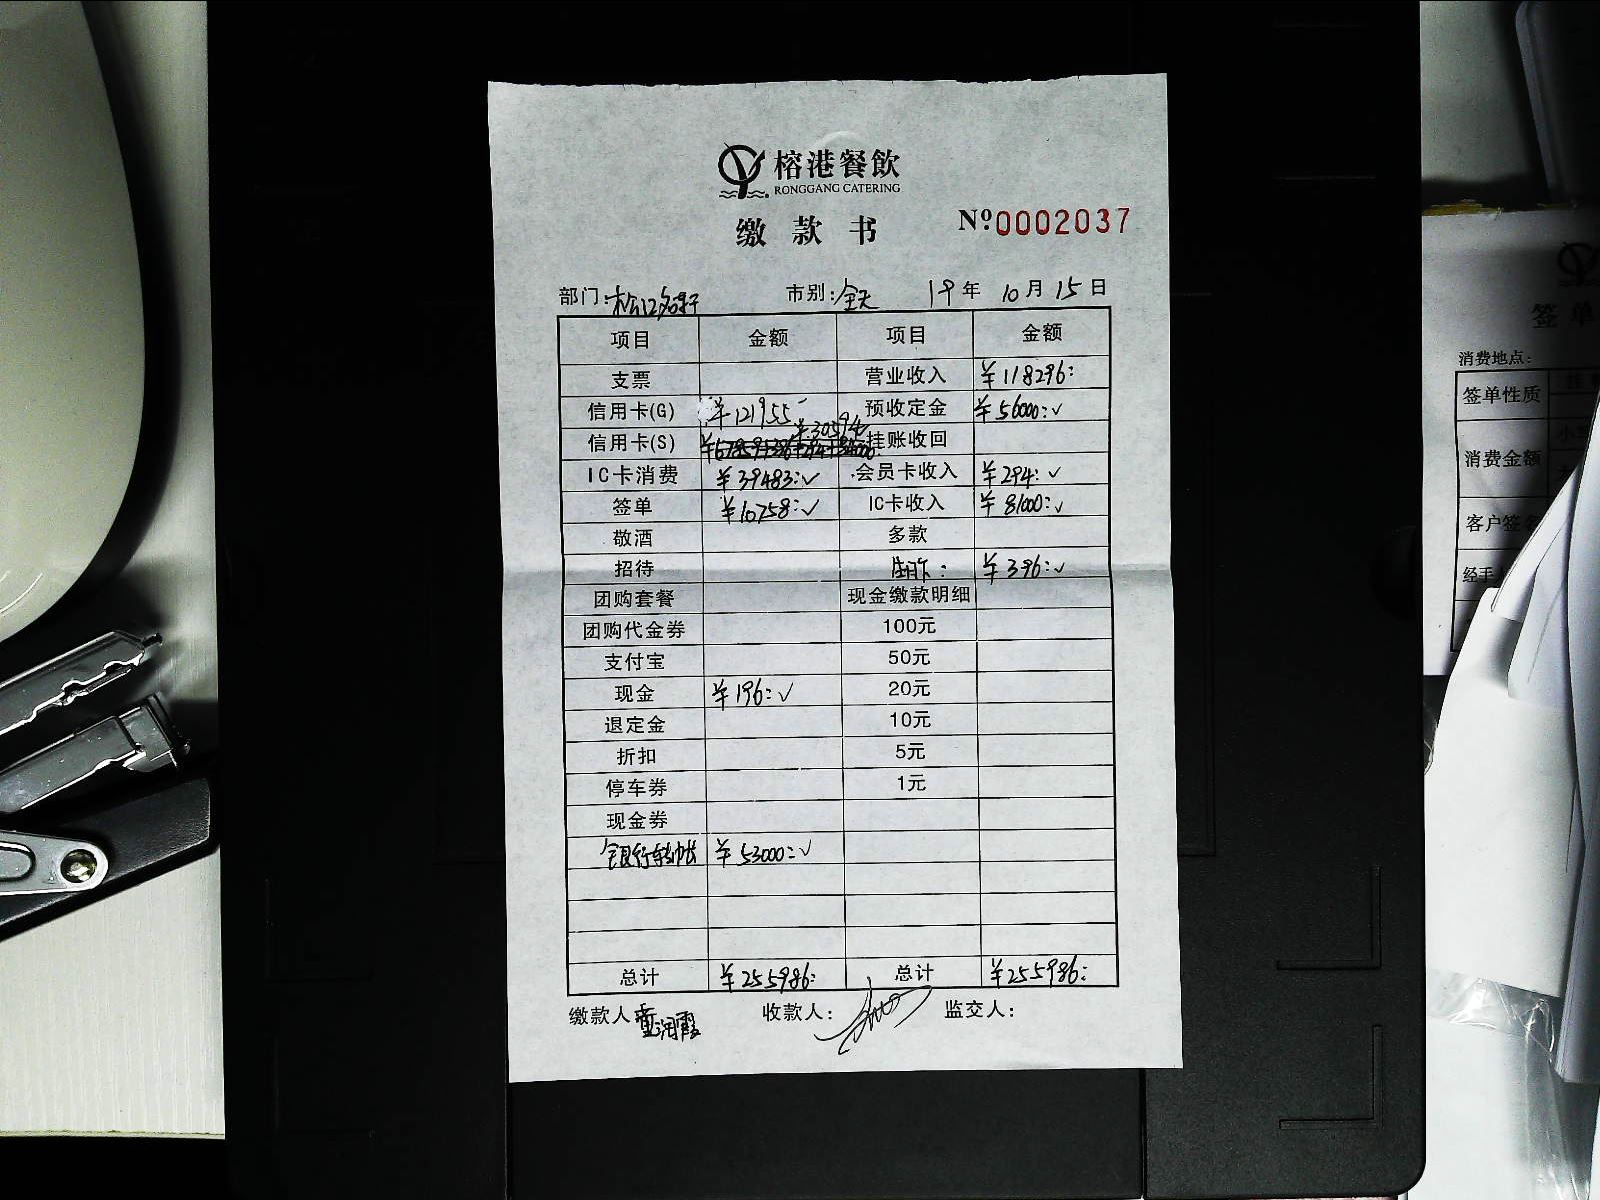 榕港餐飲
RONGGANG CATERING
缴款书
Nº0002037
部门: 市别:全天 19年 10月 15日
项目 金额 项目 金额
支票 营业收入 ¥118296:
信用卡(G) ¥121955 预收定金 ¥56000:✓
信用卡(S) ¥30594 挂账收回
IC卡消费 ¥39483:✓ 会员卡收入 ¥294:✓
签单 ¥10758:✓ IC卡收入 ¥81000:✓
敬酒 多款
招待 ¥396:✓
团购套餐 现金缴款明细
团购代金券 100元
支付宝 50元
现金 ¥196:✓ 20元
退定金 10元
折扣 5元
停车券 1元
现金券
银行转帐 ¥53000:✓
总计 ¥255986: 总计 ¥255986:
缴款人 童润霞 收款人: 监交人:
签单
消费地点:
签单性质
消费金额
客户签名
经手